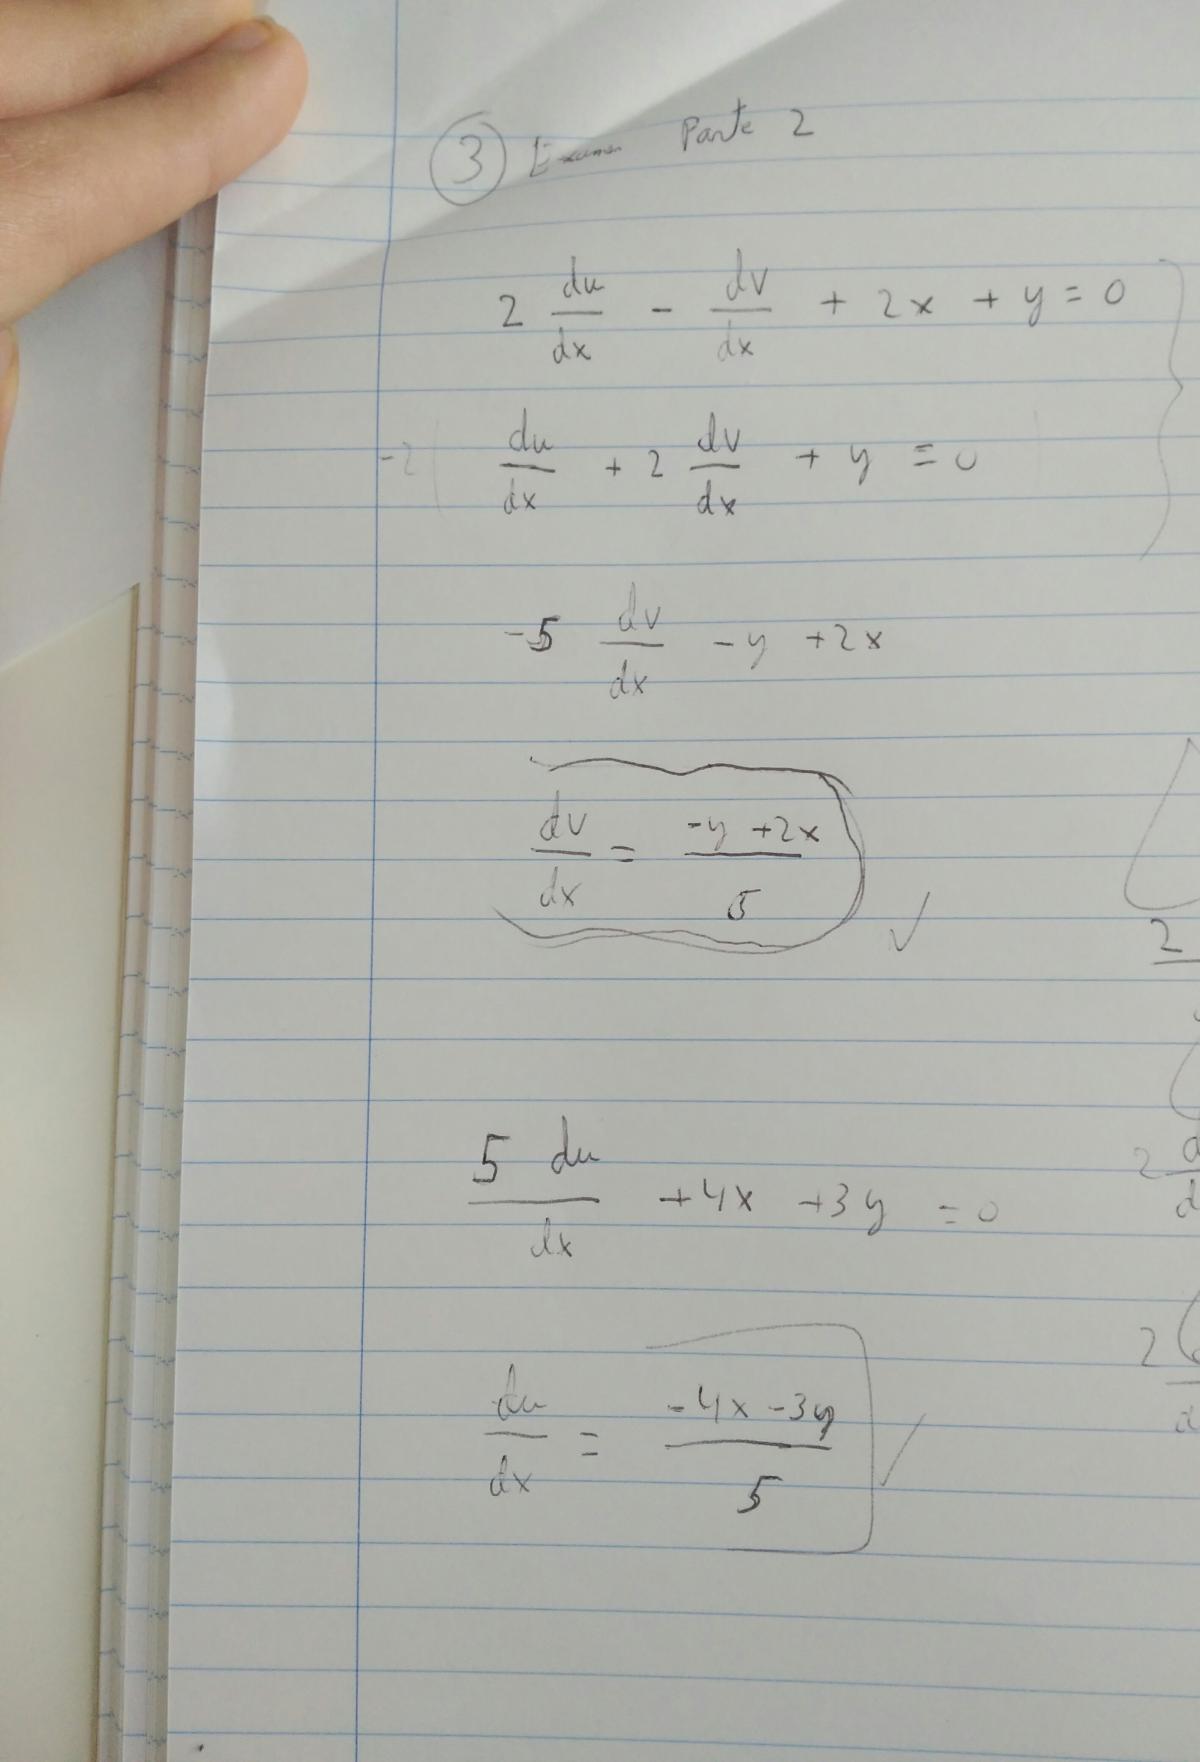 3 Examen Parte 2
2 du/dx - dv/dx + 2x + y = 0
-2( du/dx + 2 dv/dx + y = 0
-5 dv/dx - y + 2x
dv/dx = -y + 2x / 5 ✓
2
5 du/dx + 4x + 3y = 0
2 d/d
du/dx = -4x - 3y / 5 ✓
2